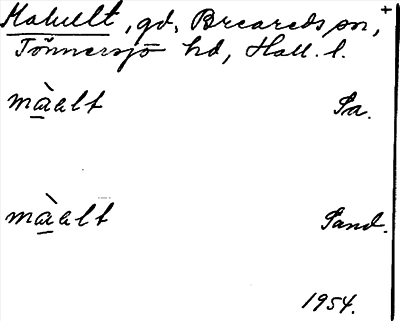 Mahult, gd, Breareds sn, +
Tönnersjö hd, Hall. l.
màhlt Sa.
màhlt Sand.
1954.